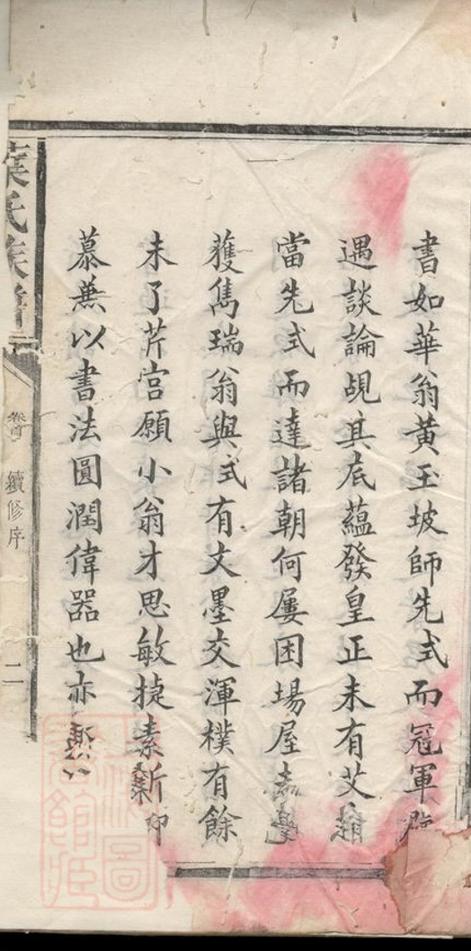 書如華翁黃玉坡師先式而冠軍
遇談論覘其底蘊發皇正未有艾
當先式而達諸朝何屢困場屋志
獲雋瑞翁與式有文墨交渾樸有餘
未了芹宮願小翁才思敏捷素所仰
慕無以書法圓潤偉器也亦
葉氏族譜
卷首
續修序
二